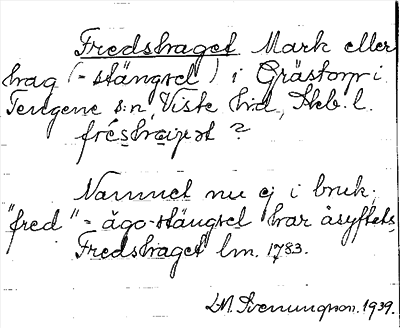 Fredshaget Mark eller
hag (-stängsel) i Grästorp i
Tengene s:n, Viste hd, Skb. l.
fréshaget ?
Namnet nu ej i bruk;
"fred" - ägo-stängsel har åsyftets
Fredshaget lm. 1783.
LM. Svenungson. 1939.